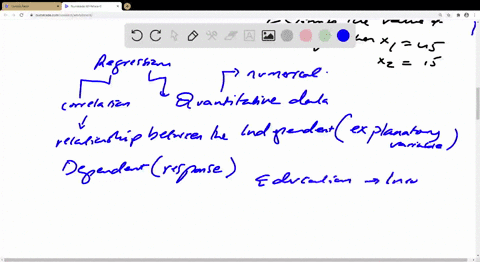 Regression
→ numerical.
x₁ = 45
x₂ = 15
correlation
Quantitative data
relationship between the Independent (explanatory variable)
Dependent (response)
Education →